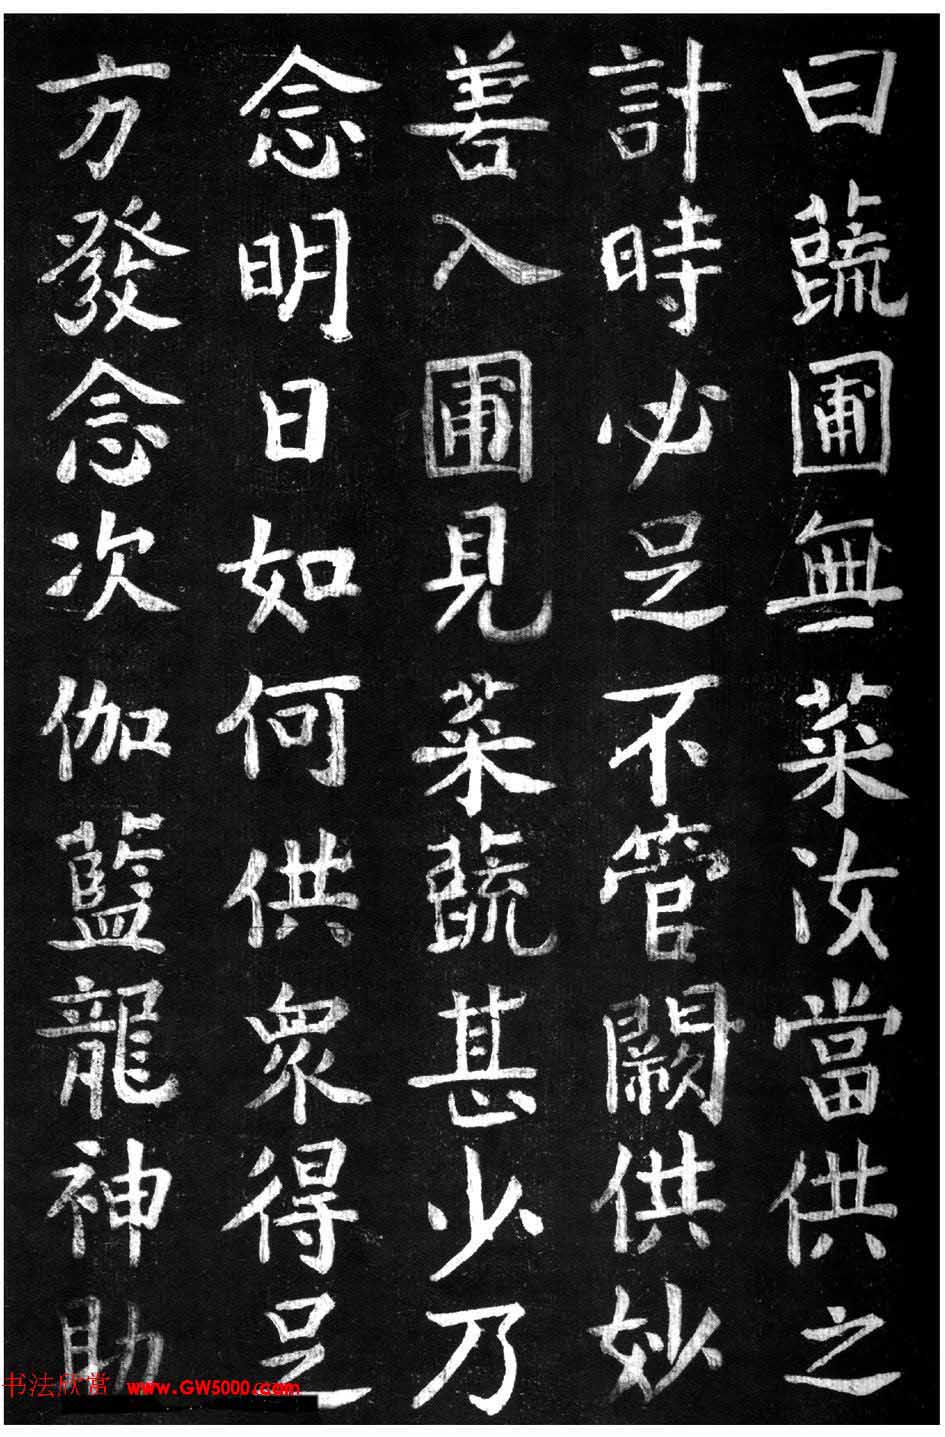 曰蔬圃無菜汝當供之
計時必足不管闕供妙
善入圃見菜蔬甚少乃
念明日如何供衆得足
方發念次伽藍龍神助
书法欣赏 www.GW5000.com